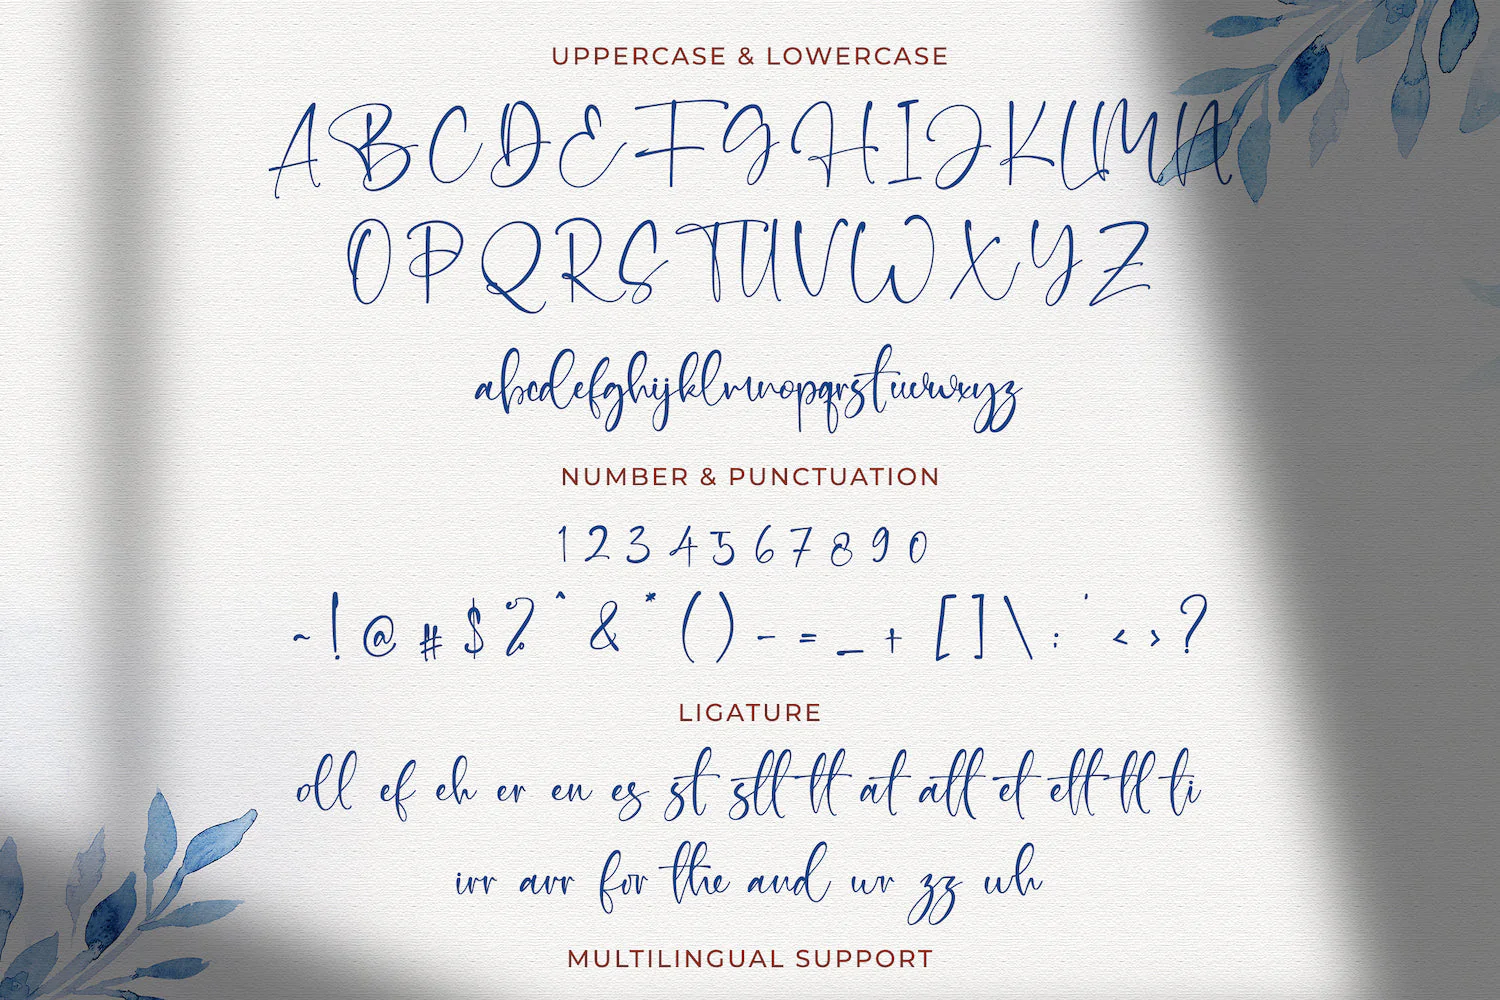 UPPERCASE & LOWERCASE
A B C D E F G H I J K L M N
O P Q R S T U V W X Y Z
abcdefghijklmnopqrstuvwxyz
NUMBER & PUNCTUATION
1 2 3 4 5 6 7 8 9 0
~ ! @ # $ % ^ & * ( ) - = _ + [ ] \ : ' < > ?
LIGATURE
oll ef eh er en es st stt tt at att et ett tl ti
irr arr for the and ur zz wh
MULTILINGUAL SUPPORT